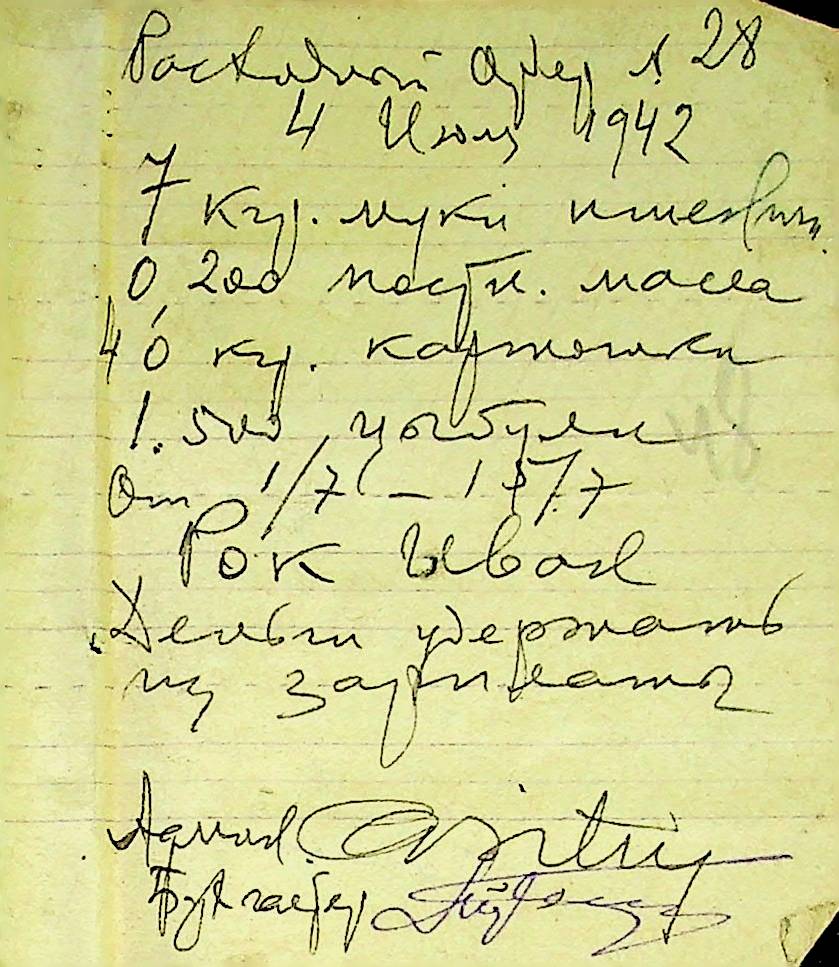 Расходный Ордер № 28
4 Июля 1942
7 кгр. муки пшенич.
0,200 постн. масла
40 кг. картошки
1.500 цыбули
48
От 1/7 – 15/7
Рок Иван
Деньги удержать
из зарплаты
Админ.
Бухгалтер